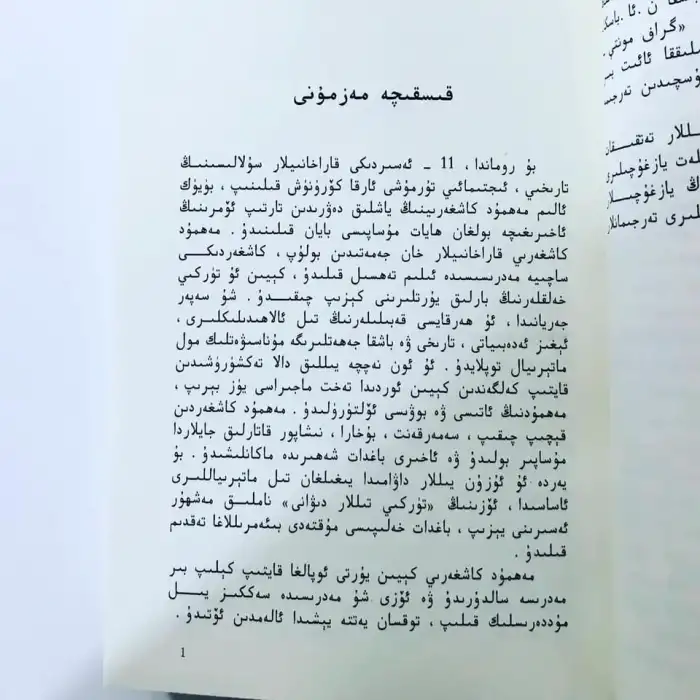 قىسقىچە مەزمۇنى
بۇ روماندا، 11 ـ ئەسىردىكى قاراخانىيلار سۇلالىسىنىڭ
تارىخىي، ئىجتىمائىي تۇرمۇشى ئارقا كۆرۈنۈش قىلىنىپ، بۈيۈك
ئالىم مەھمۇد كاشغەرىينىڭ ياشلىق دەۋرىدىن تارتىپ ئۆمرىنىڭ
ئاخىرىغىچە بولغان ھايات مۇساپىسى بايان قىلىنىدۇ. مەھمۇد
كاشغەرىي قاراخانىيلار خان جەمەتىدىن بولۇپ، كاشغەردىكى
ساچىيە مەدرىسىسىدە ئىلىم تەھسىل قىلىدۇ، كېيىن ئۇ تۈركىي
خەلقلەرنىڭ بارلىق يۇرتلىرىنى كېزىپ چىقىدۇ. شۇ سەپەر
جەريانىدا، ئۇ ھەرقايسى قەبىلىلەرنىڭ تىل ئالاھىدىلىكلىرى،
ئېغىز ئەدەبىياتى، تارىخى ۋە باشقا جەھەتلىرىگە مۇناسىۋەتلىك مول
ماتېرىيال توپلايدۇ. ئۇ ئون نەچچە يىللىق دالا تەكشۈرۈشىدىن
قايتىپ كەلگەندىن كېيىن ئوردىدا تەخت ماجىراسى يۈز بېرىپ،
مەھمۇدنىڭ ئاتىسى ۋە بوۋىسى ئۆلتۈرۈلىدۇ. مەھمۇد كاشغەردىن
قېچىپ چىقىپ، سەمەرقەنت، بۇخارا، نىشاپور قاتارلىق جايلاردا
مۇساپىر بولىدۇ ۋە ئاخىرى باغدات شەھىرىدە ماكانلىشىدۇ. بۇ
يەردە ئۇ ئۇزۇن يىللار داۋامىدا يىغىلغان تىل ماتېرىياللىرى
ئاساسىدا، ئۆزىنىڭ «تۈركىي تىللار دىۋانى» ناملىق مەشھۇر
ئەسىرىنى يېزىپ، باغدات خەلىپىسى مۇقتەدى بىئەمرىللاغا تەقدىم
قىلىدۇ.
مەھمۇد كاشغەرىي كېيىن يۇرتى ئوپالغا قايتىپ كېلىپ بىر
مەدرىسە سالدۇرىدۇ ۋە ئۆزى شۇ مەدرىسىدە سەككىز يىل
مۇددەرىسلىك قىلىپ، توقسان يەتتە يېشىدا ئالەمدىن ئۆتىدۇ.
1
«گراف مونتې
ئائىت بىر
تەتقىقان
يازغۇچىلىرى
يازغۇچىلار